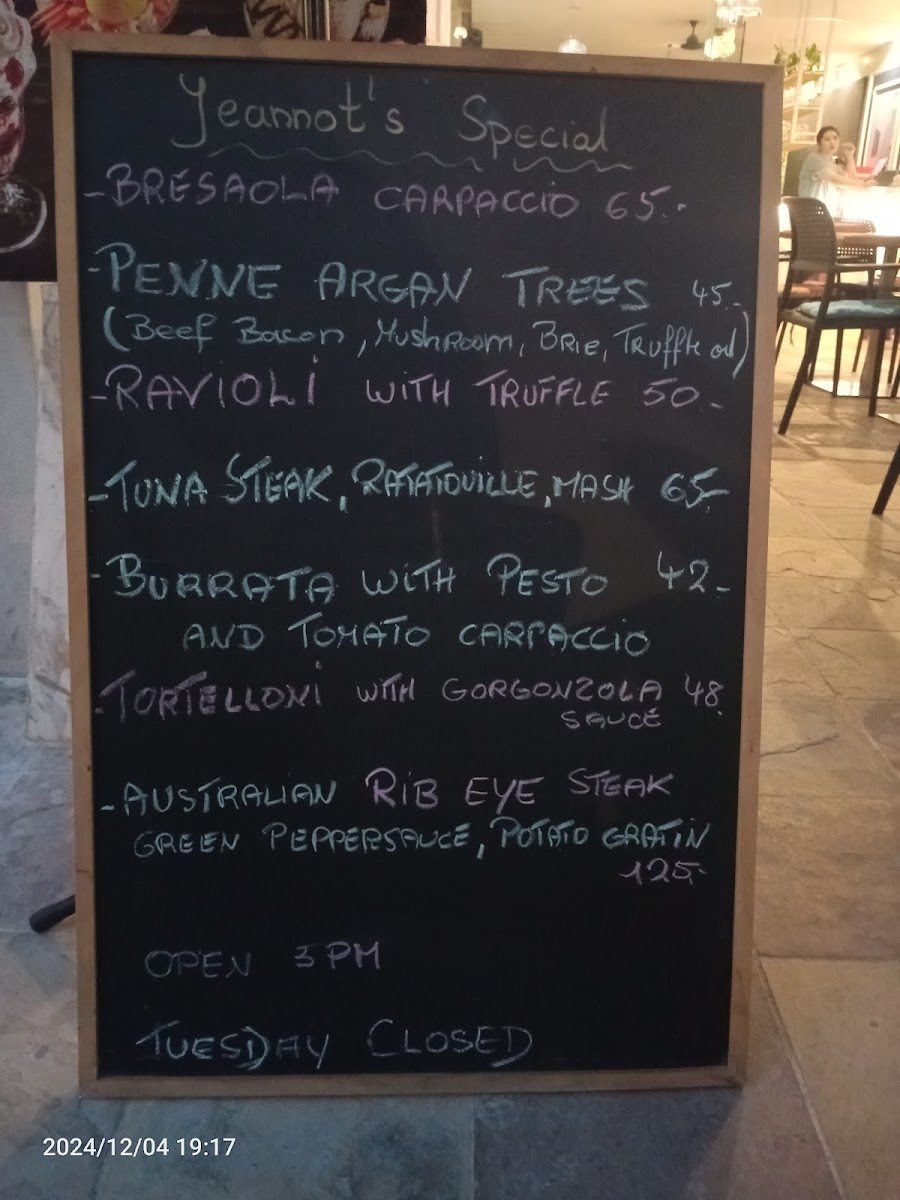 Jeannot's Special
- BRESAOLA CARPACCIO 65.-
- PENNE ARGAN TREES 45.-
(Beef Bacon, Mushroom, Brie, Truffle oil)
- RAVIOLI WITH TRUFFLE 50.-
- TUNA STEAK, RATATOUILLE, MASH 65.-
- BURRATA WITH PESTO 42.-
AND TOMATO CARPACCIO
- TORTELLONI WITH GORGONZOLA 48.
SAUCE
- AUSTRALIAN RIB EYE STEAK
GREEN PEPPERSAUCE, POTATO GRATIN
125.-
OPEN 5 PM
TUESDAY CLOSED
2024/12/04 19:17